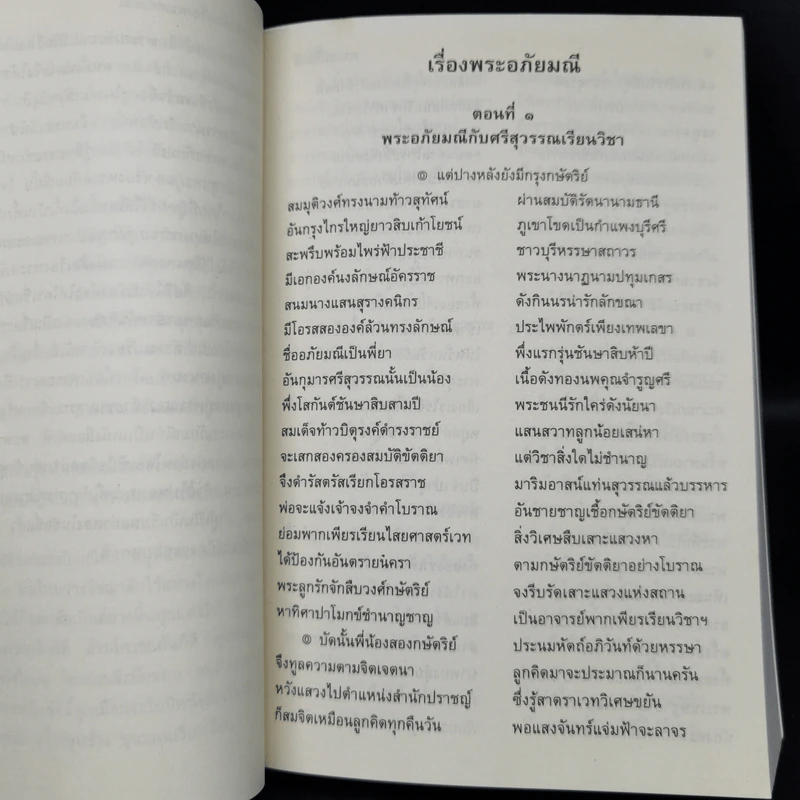 เรื่องพระอภัยมณี
ตอนที่ ๑
พระอภัยมณีกับศรีสุวรรณเรียนวิชา
๏ แต่ปางหลังยังมีกรุงกษัตริย์
สมมุติวงศ์ทรงนามท้าวสุทัศน์ ผ่านสมบัติรัตนานามธานี
อันกรุงไกรใหญ่ยาวสิบเก้าโยชน์ ภูเขาโขดเป็นกำแพงบุรีศรี
สะพรึบพร้อมไพร่ฟ้าประชาชี ชาวบุรีหรรษาสถาวร
มีเอกองค์นงลักษณ์อัครราช พระนางนาฏนามปทุมเกสร
สนมนางแสนสุรางคนิกร ดังกินนรน่ารักลักขณา
มีโอรสสององค์ล้วนทรงลักษณ์ ประไพพักตร์เพียงเทพเลขา
ชื่ออภัยมณีเป็นพี่ยา พึ่งแรกรุ่นชันษาสิบห้าปี
อันกุมารศรีสุวรรณนั้นเป็นน้อง เนื้อดังทองนพคุณจำรูญศรี
พึ่งโสกันต์ชันษาสิบสามปี พระชนนีรักใคร่ดังนัยนา
สมเด็จท้าวบิตุรงค์ดำรงราชย์ แสนสวาทลูกน้อยเสน่หา
จะเสกสองครองสมบัติขัตติยา แต่วิชาสิ่งใดไม่ชำนาญ
จึงดำรัสตรัสเรียกโอรสราช มาริมอาสน์แท่นสุวรรณแล้วบรรหาร
พ่อจะแจ้งเจ้าจงจำคำโบราณ อันชายชาญเชื้อกษัตริย์ขัตติยา
ย่อมพากเพียรเรียนไสยศาสตร์เวท สิ่งวิเศษสืบเสาะแสวงหา
ได้ป้องกันอันตรายนัครา ตามกษัตริย์ขัตติยาอย่างโบราณ
พระลูกรักจักสืบวงศ์กษัตริย์ จงรีบรัดเสาะแสวงแห่งสถาน
หาทิศาปาโมกข์ชำนาญชาญ เป็นอาจารย์พากเพียรเรียนวิชาฯ
๏ บัดนั้นพี่น้องสองกษัตริย์ ประนมหัตถ์อภิวันท์ด้วยหรรษา
จึงทูลความตามจิตเจตนา ลูกคิดมาจะประมาณก็นานครัน
หวังแสวงไปตำแหน่งสำนักปราชญ์ ซึ่งรู้สาตราเวทวิเศษขยัน
ก็สมจิตเหมือนลูกคิดทุกคืนวัน พอแสงจันทร์แจ่มฟ้าจะลาจร